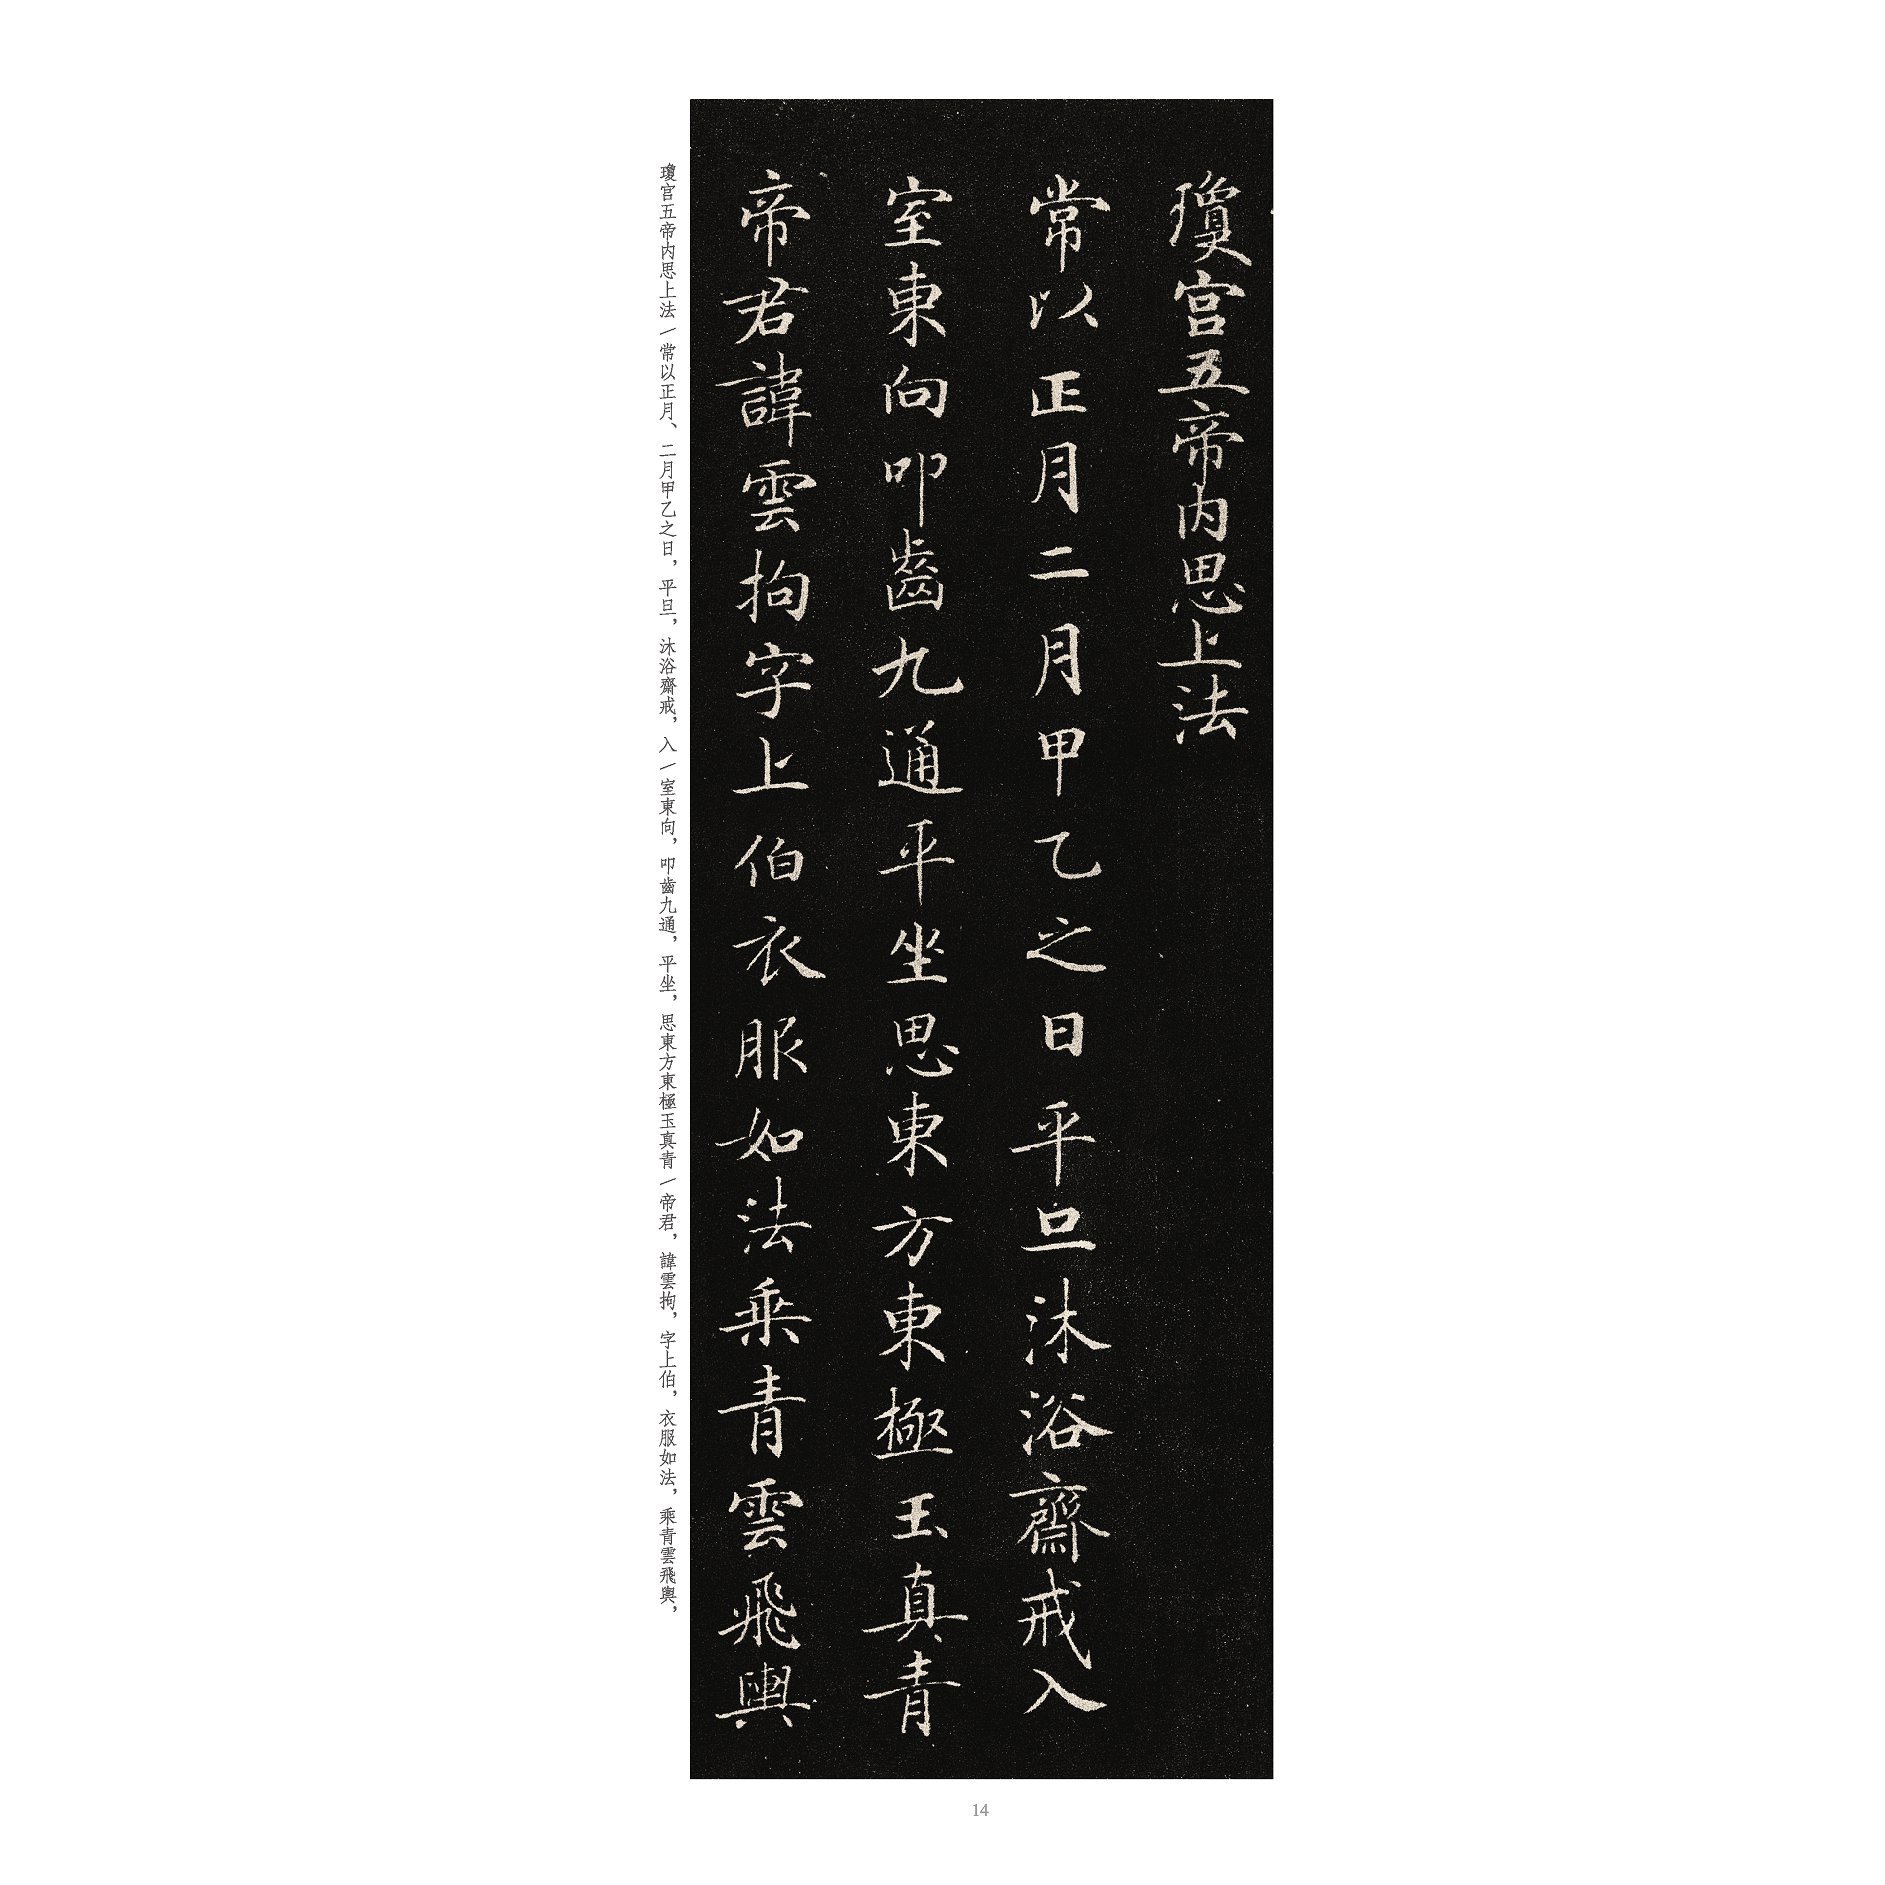 瓊宫五帝内思上法
常以正月二月甲乙之日平旦沐浴齋戒入
室東向叩齒九通平坐思東方東極玉真青
帝君諱雲拘字上伯衣服如法乘青雲飛輿
瓊宫五帝内思上法/常以正月、二月甲乙之日，平旦，沐浴齋戒，入/室東向，叩齒九通，平坐，思東方東極玉真青/帝君，諱雲拘，字上伯，衣服如法，乘青雲飛輿，
14